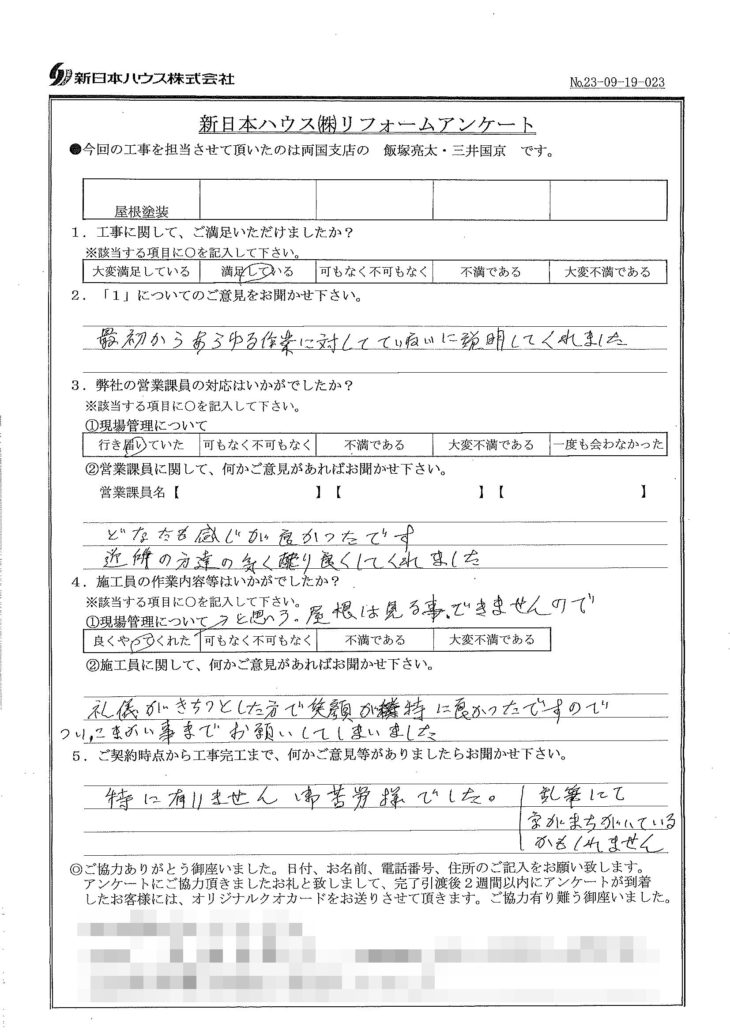 新日本ハウス株式会社
No.23-09-19-023
新日本ハウス㈱リフォームアンケート
●今回の工事を担当させて頂いたのは両国支店の 飯塚亮太・三井国京 です。
屋根塗装
1．工事に関して、ご満足いただけましたか？
※該当する項目に○を記入して下さい。
大変満足している 満足している 可もなく不可もなく 不満である 大変不満である
2．「1」についてのご意見をお聞かせ下さい。
最初からあらゆる作業に対してていねいに説明してくれました
3．弊社の営業課員の対応はいかがでしたか？
※該当する項目に○を記入して下さい。
①現場管理について
行き届いていた 可もなく不可もなく 不満である 大変不満である 一度も会わなかった
②営業課員に関して、何かご意見があればお聞かせ下さい。
営業課員名【 】【 】【 】
どなたも感じが良かったです
近所の方達の気く配り良くしてくれました
4．施工員の作業内容等はいかがでしたか？
※該当する項目に○を記入して下さい。
①現場管理について うと思う。屋根は見る事、できませんので
良くやってくれた 可もなく不可もなく 不満である 大変不満である
②施工員に関して、何かご意見があればお聞かせ下さい。
礼儀がきちっとした方で笑顔が特に良かったですので
つい、こまかい事までお願いしてしまいました
5．ご契約時点から工事完工まで、何かご意見等がありましたらお聞かせ下さい。
特に有りません 御苦労様でした。
乱筆にて
字がまちがいている
かもしれません
◎ご協力ありがとう御座いました。日付、お名前、電話番号、住所のご記入をお願い致します。
アンケートにご協力頂きましたお礼と致しまして、完了引渡後2週間以内にアンケートが到着
したお客様には、オリジナルクオカードをお送りさせて頂きます。ご協力有り難う御座いました。